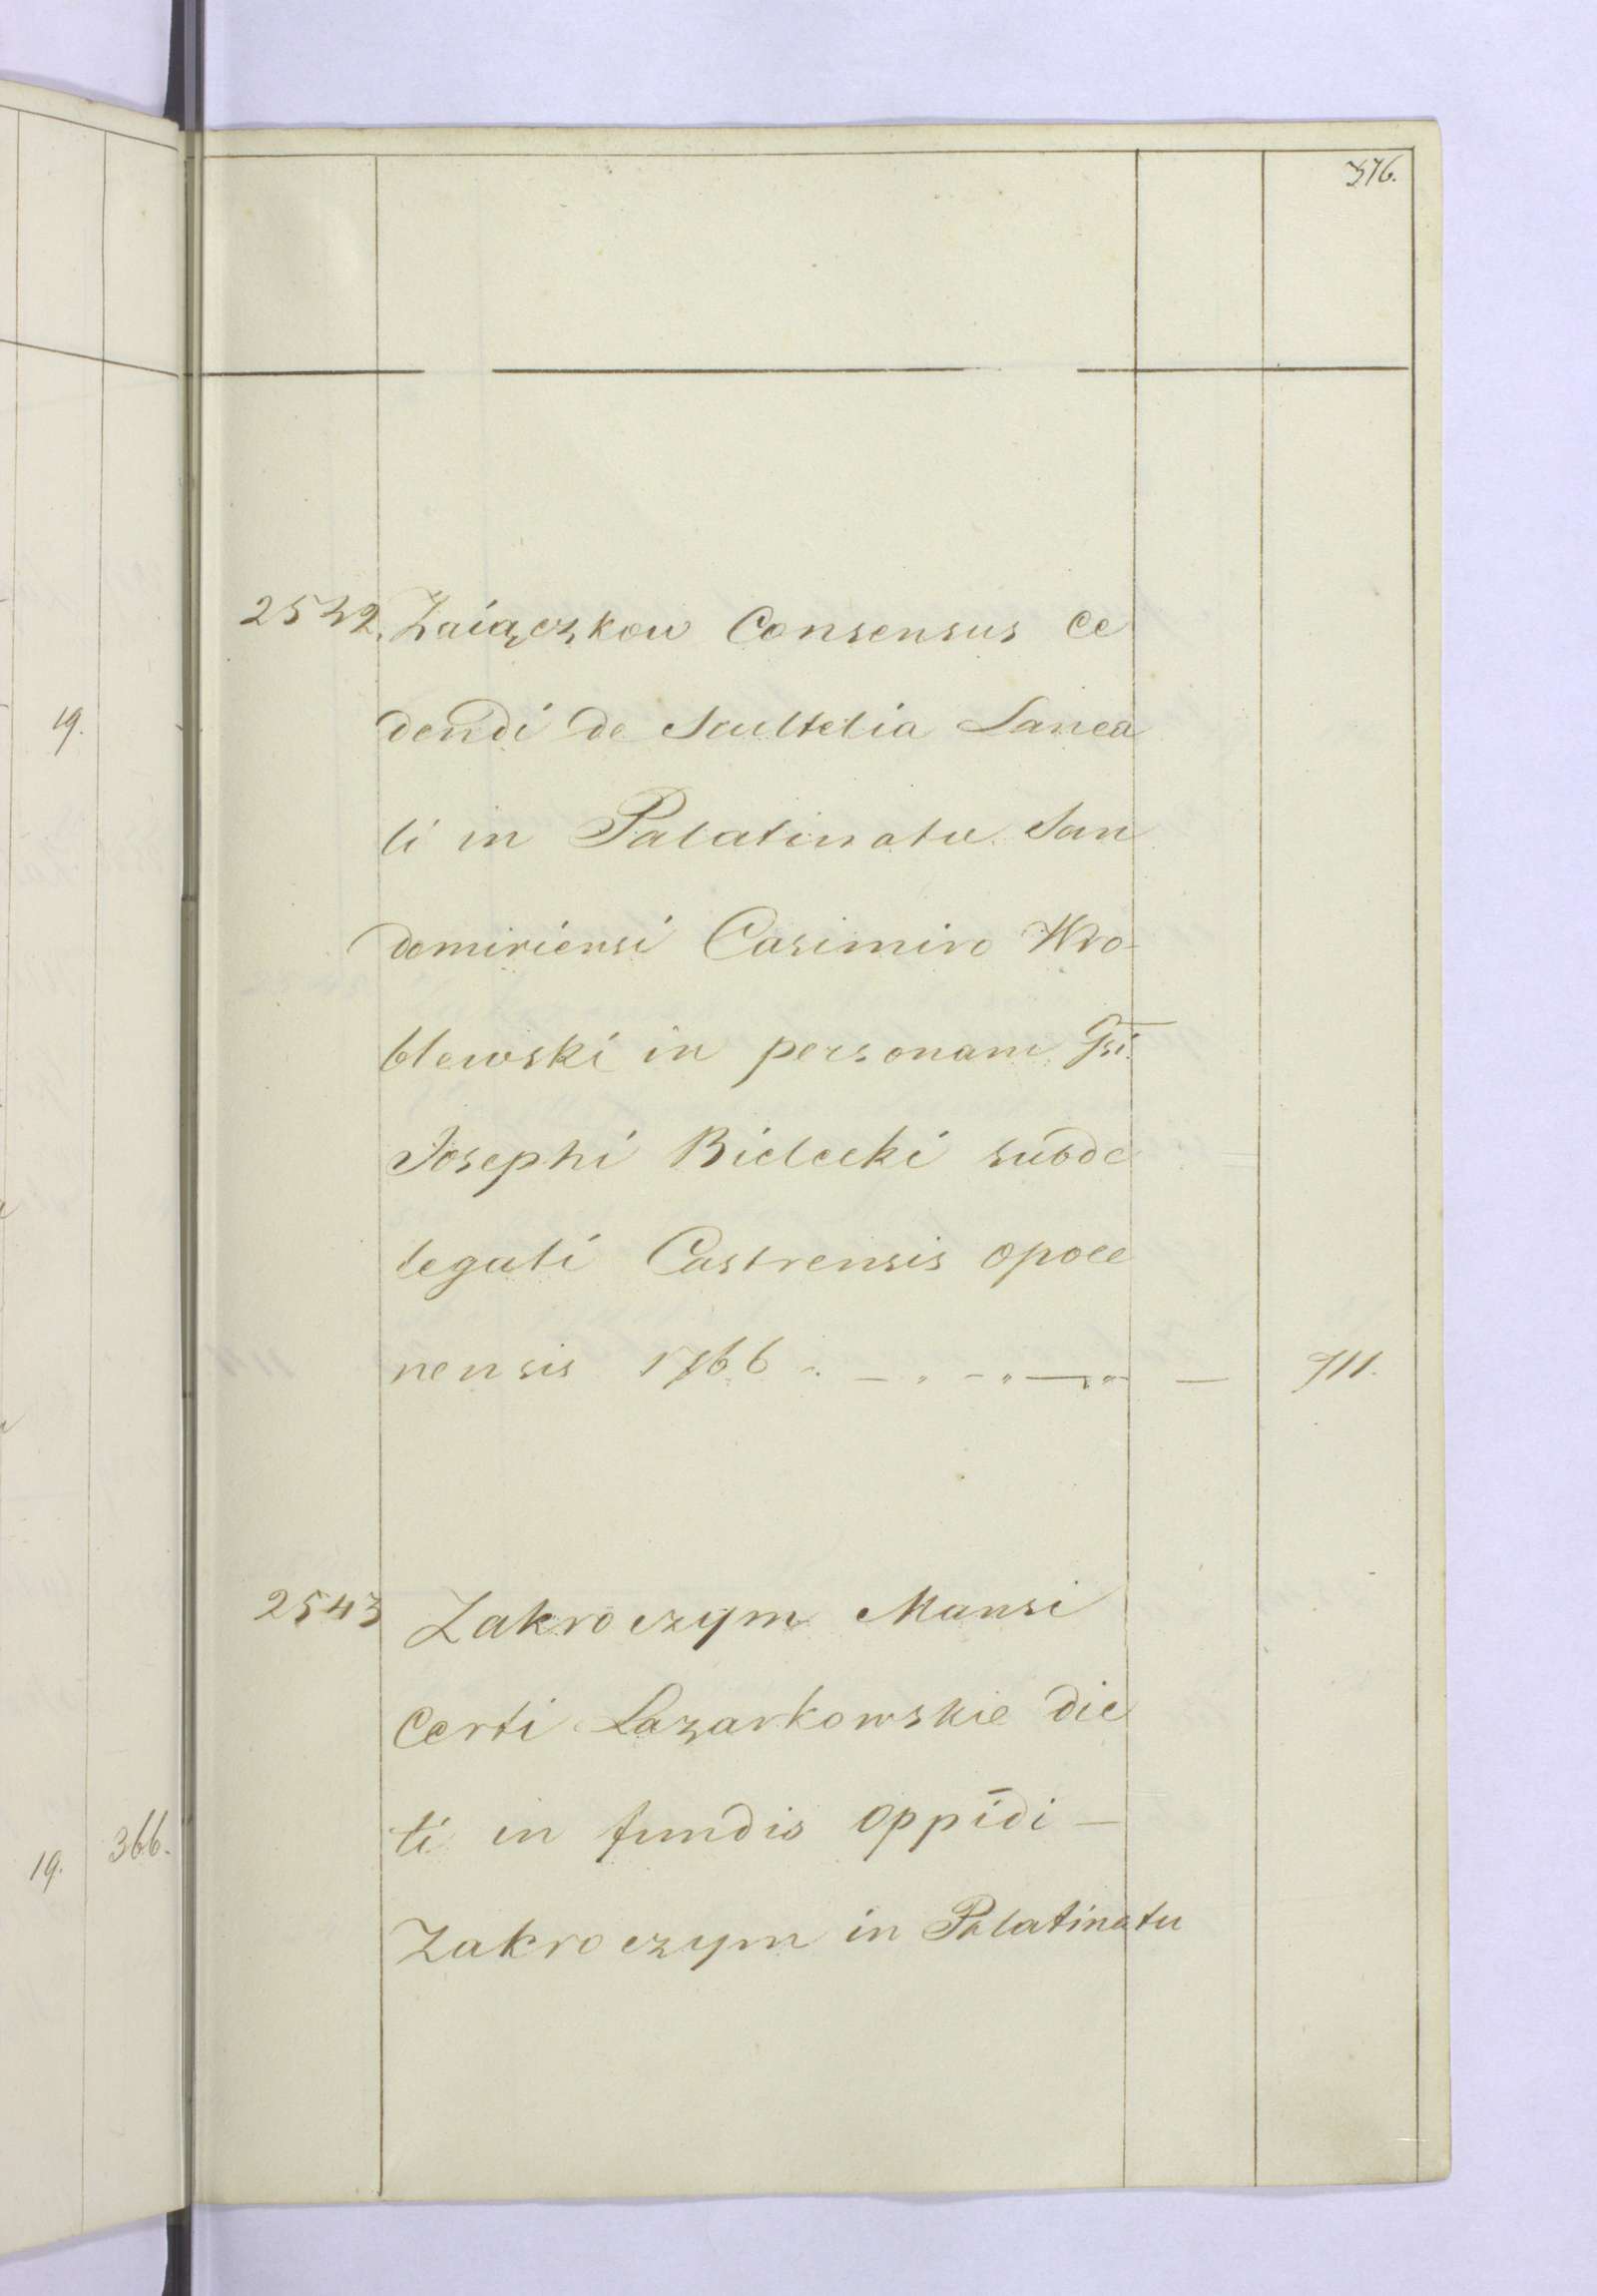 376.
2542. Zaiączkow Consensus ce
dendi de Scultetia Lanea
li in Palatinatu San
domiriensi Casimiro Wro-
blewski in personam Gsi
Josephi Bielecki subde
legati Castrensis opocz
nensis 1766 - 911.
2543 Zakroczym Mansi
Certi Lazarkowskie dic
ti in fundis oppidi -
Zakroczym in Palatinatu
19.
19. 366.